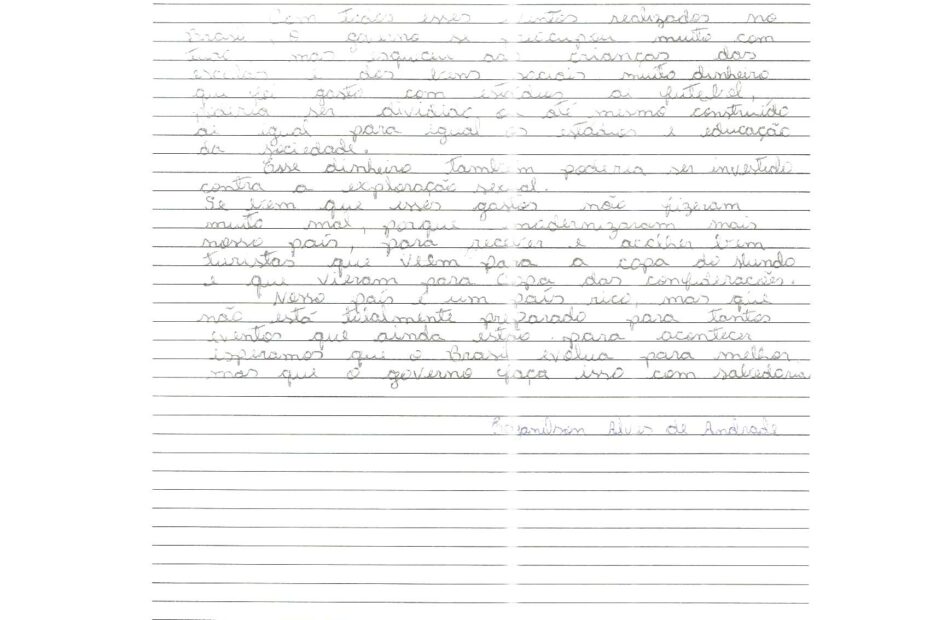 Com todos esses eventos realizados no
Brasil, o governo se preocupou muito com
tudo mas esqueceu as crianças das
escolas e dos bens sociais muito dinheiro
que foi gasto com estádios de futebol,
poderia ser dividido ou até mesmo construido
de igual para igual os estadios e educação
da sociedade.
Esse dinheiro também poderia ser investido
contra a exploração sexual.
Se bem que esses gastos não fizeram
muito mal, porque modernizaram mais
nosso país, para receber e acolher bem
turistas que vêem para a copa do Mundo
e que vieram para Copa das confederações.
Nosso país é um país rico, mas que
não está totalmente preparado para tantos
eventos que ainda estão para acontecer
esperamos que o Brasil evolua para melhor
mas que o governo faça isso com sabedoria
Alves de Andrade